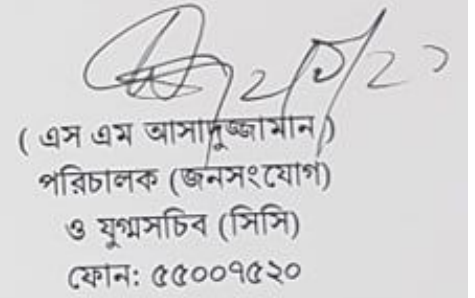 ( এস এম আসাদুজ্জামান )
পরিচালক (জনসংযোগ)
ও যুগ্মসচিব (সিসি)
ফোন: ৫৫০০৭৫২০